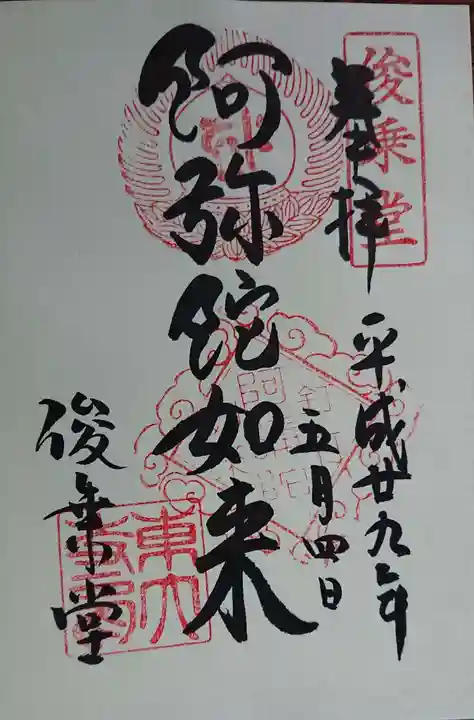 俊乗堂
奉拝
平成廿九年
五月四日
阿弥陀如来
俊乗堂